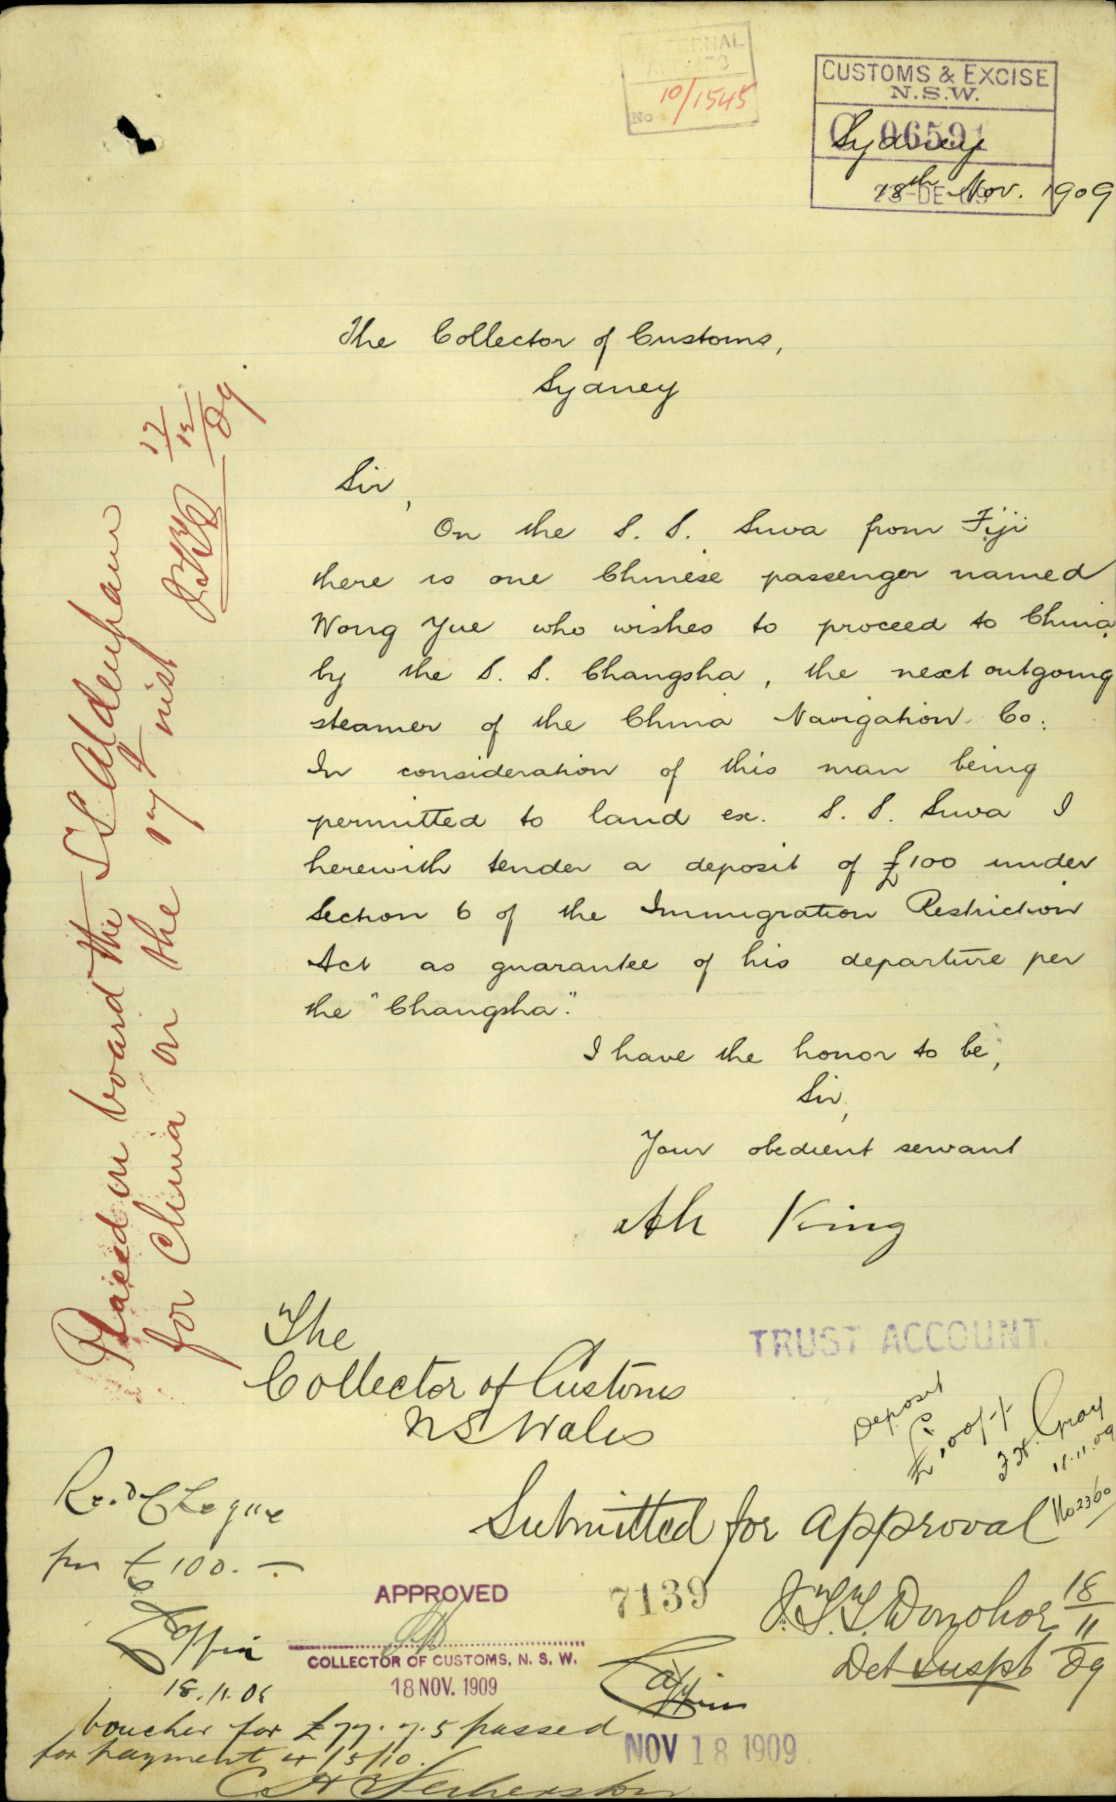 No 10/1545
CUSTOMS & EXCISE
N.S.W.
C 06591
Sydney
18th Nov. 1909
The Collector of Customs,
Sydney
Sir,
On the S. S. Suva from Fiji
there is one Chinese passenger named
Wong Yue who wishes to proceed to China
by the S. S. Changsha, the next outgoing
steamer of the China Navigation Co.
In consideration of this man being
permitted to land ex. S. S. Suva I
herewith tender a deposit of £100 under
Section 6 of the Immigration Restriction
Act as guarantee of his departure per
the "Changsha".
I have the honor to be,
Sir,
Your obedient servant
Ah King
Placed on board the SS Aldenham
for China on the 17 inst
17/12/09
The
Collector of Customs
N S Wales
TRUST ACCOUNT
Deposit
£100/-/-
Gray
No 2360
Submitted for approval
J.T.T. Donohoe 18/11/09
Det Inspt
Recd Cheque
for £100.-.
18.11.09
APPROVED
COLLECTOR OF CUSTOMS, N. S. W.
18 NOV. 1909
7139
NOV 18 1909
Voucher for £77.7.5 passed
for payment 4/5/10.